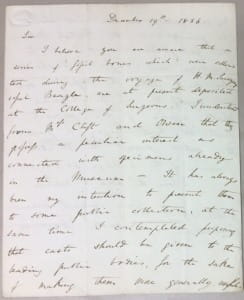 December 19th 1836
Sir
I believe you are aware that a
series of fossil bones which were collec-
ted during the voyage of H.M. Surveying
vessel Beagle are at present deposited
at the College of Surgeons. I understand
from Mr Clift and Owen that they
possess a peculiar interest in
connection with specimens already
in the Museum — It has always
been my intention to present them
to some public collection, at the
same time I contemplated proposing
that casts should be given to the
leading public bodies, for the sake
of making them more generally useful